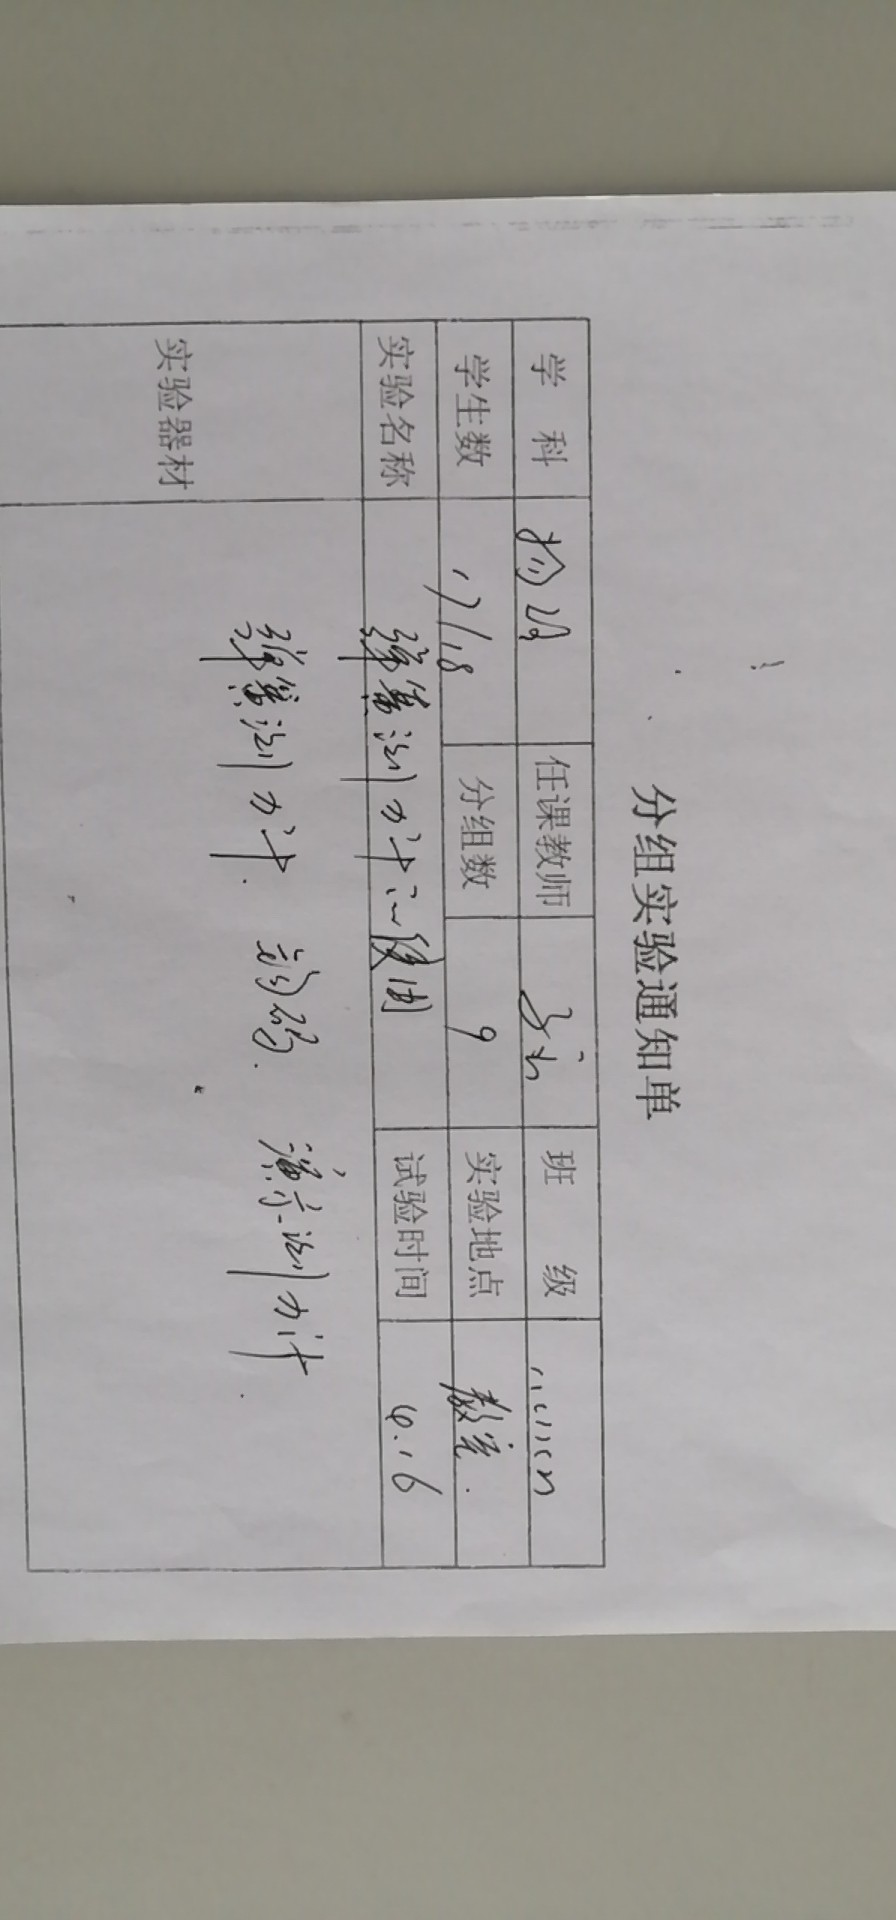 分组实验通知单
学 科 物理 任课教师 班 级
学生数 17/18 分组数 9 实验地点 教室.
实验名称 弹簧测力计的使用 试验时间 4.16
实验器材 弹簧测力计. 钩码. 演示测力计.